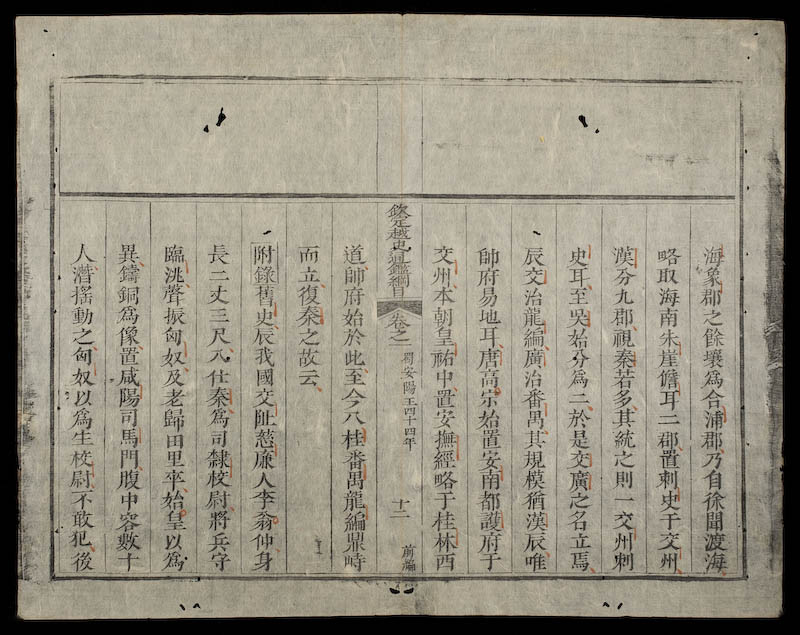 海象郡之餘壤爲合浦郡乃自徐聞渡海
略取海南朱崖儋耳二郡置刺史于交州
漢分九郡視秦若多其統之則一交州刺
史耳至吳始分爲二於是交廣之名立焉
辰交治龍編廣治番禺其規模猶漢辰唯
帥府易地耳唐高宗始置安南都護府于
交州本朝皇祐中置安撫經略于桂林西
欽定越史通鑑綱目 卷之一 蜀安陽王四十四年 十二 前編
道帥府始於此至今八桂番禺龍編鼎峙
而立復秦之故云
附錄舊史辰我國交阯慈廉人李翁仲身
長二丈三尺入仕秦爲司隸校尉將兵守
臨洮聲振匈奴及老歸田里卒始皇以爲
異鑄銅爲像置咸陽司馬門腹中容數十
人潛搖動之匈奴以爲生校尉不敢犯後